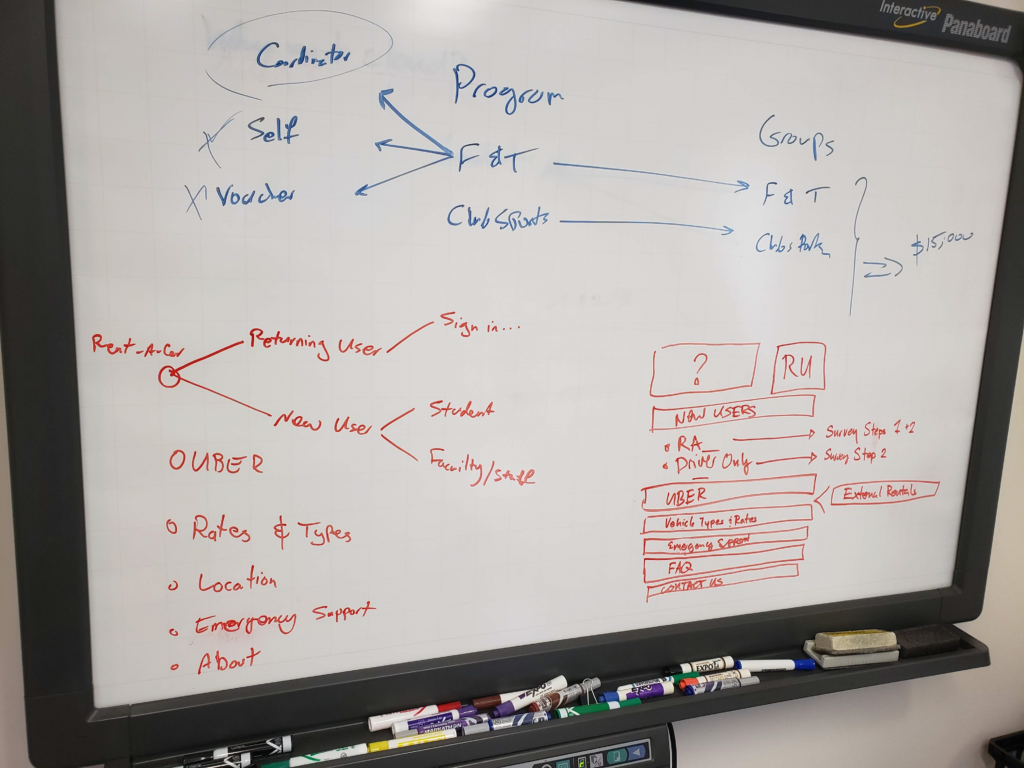 Interactive Panaboard
Cordinator
Program
Self
F & T
Voucher
Club Sports
Groups
F & T
Clubs
$15,000
Rent-A-Car
Returning User
Sign in...
New User
Student
Facility/Staff
O UBER
o Rates & Types
o Location
o Emergency Support
o About
?
RU
NEW USERS
• RA
Survey Steps 1+2
• Driver Only
Survey Step 2
UBER
External Rentals
Vehicle Types & Rates
Emergency Support
FAQ
CONTACT US
EXPO